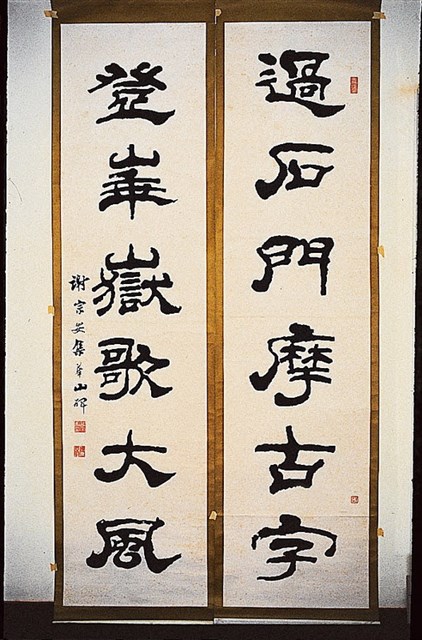 過石門摩古字
登崋嶽歌大風
謝宗安集華山碑